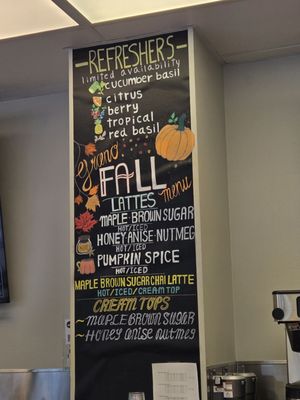 -REFRESHERS-
limited availability
cucumber basil
citrus
berry
tropical
red basil
FALL
menu
LATTES
MAPLE BROWN SUGAR
HOT/ICED
HONEY ANISE NUTMEG
HOT/ICED
PUMPKIN SPICE
HOT/ICED
MAPLE BROWN SUGAR CHAI LATTE
HOT/ICED/CREAM TOP
CREAM TOPS
~MAPLE BROWN SUGAR
~HONEY ANISE NUTMEG